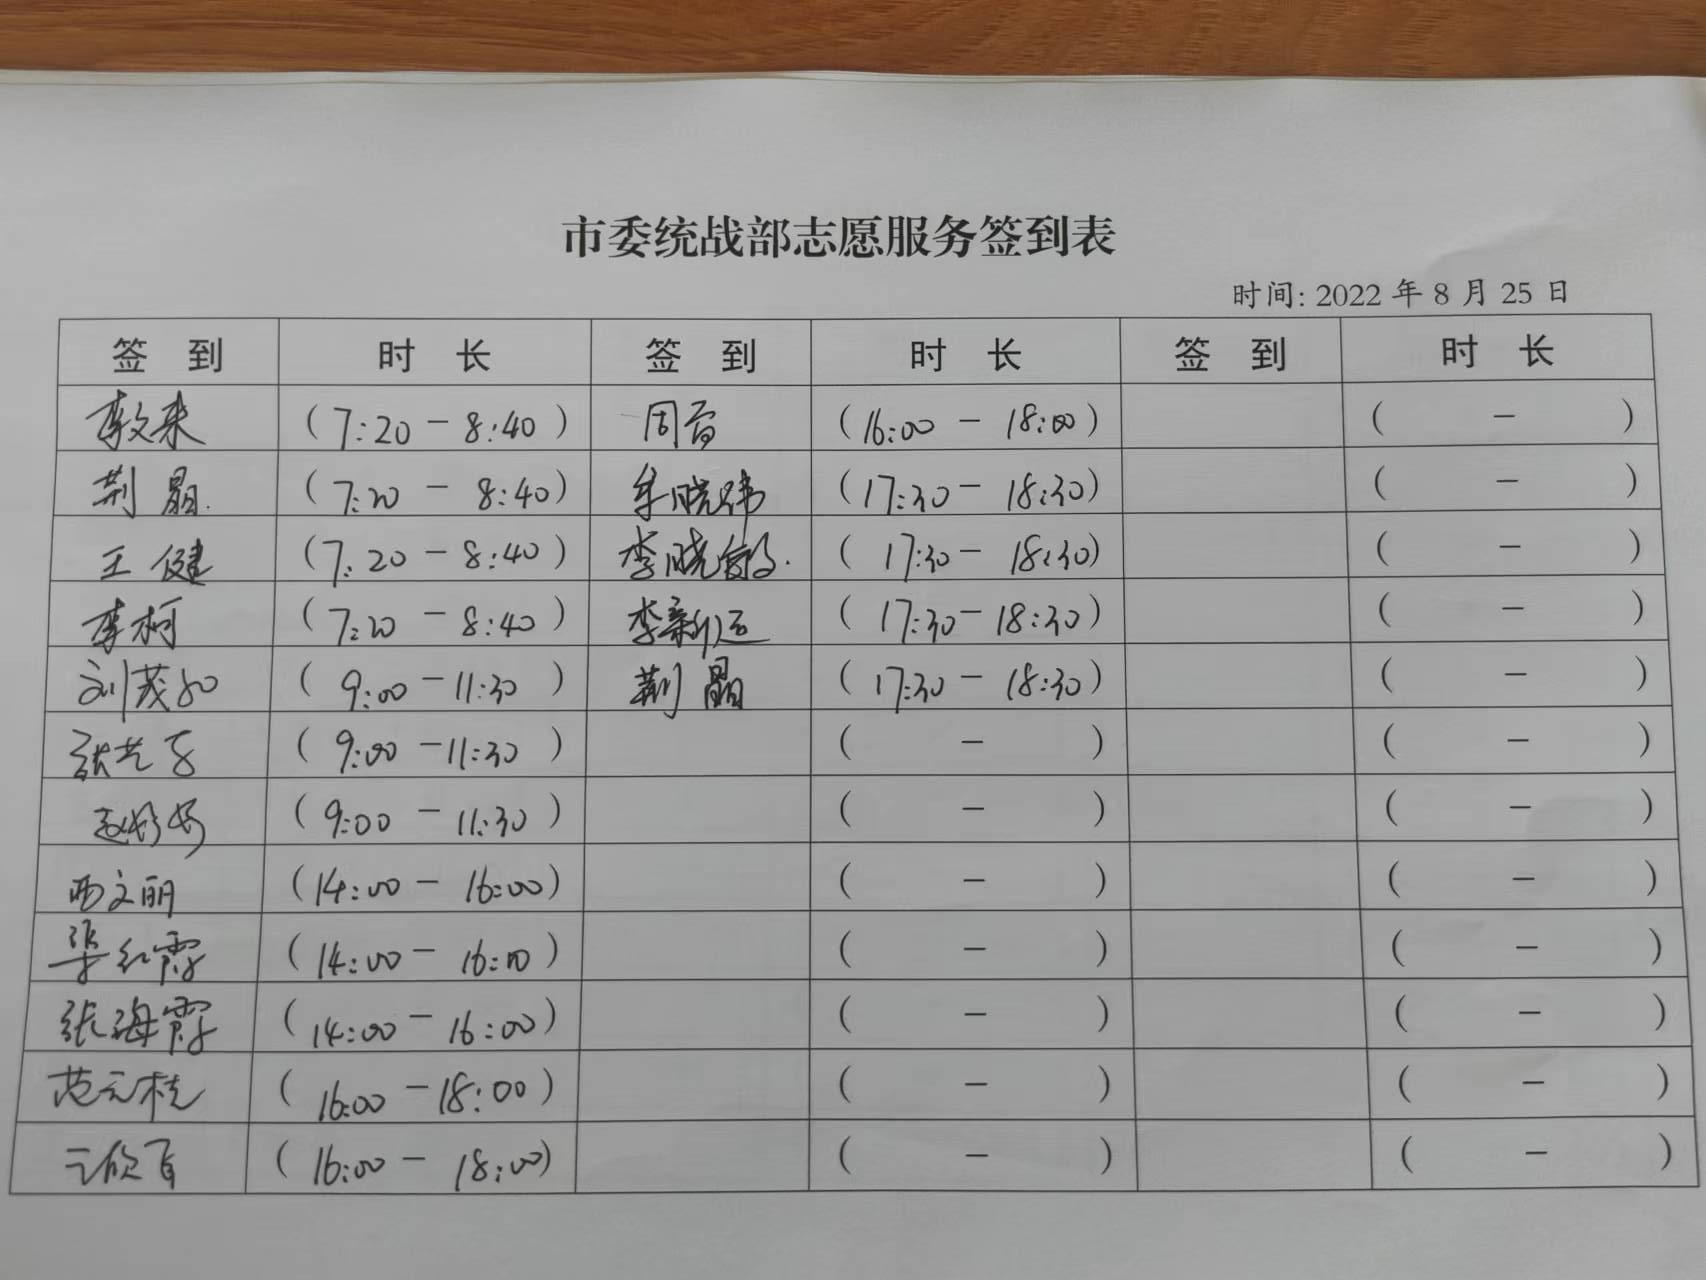 市委统战部志愿服务签到表
时间: 2022 年 8 月 25 日
签 到 时 长 签 到 时 长 签 到 时 长
(7:20 - 8:40) (16:00 - 18:00) ( - )
荆晶 (7:20 - 8:40) 牟晓伟 (17:30 - 18:30) ( - )
王健 (7:20 - 8:40) 李晓 (17:30 - 18:30) ( - )
李柯 (7:20 - 8:40) 李新运 (17:30 - 18:30) ( - )
刘茂 (9:00 - 11:30) 荆晶 (17:30 - 18:30) ( - )
张 (9:00 - 11:30) ( - ) ( - )
赵 (9:00 - 11:30) ( - ) ( - )
西文丽 (14:00 - 16:00) ( - ) ( - )
红霞 (14:00 - 16:00) ( - ) ( - )
张海霞 (14:00 - 16:00) ( - ) ( - )
范元桂 (16:00 - 18:00) ( - ) ( - )
(16:00 - 18:00) ( - ) ( - )